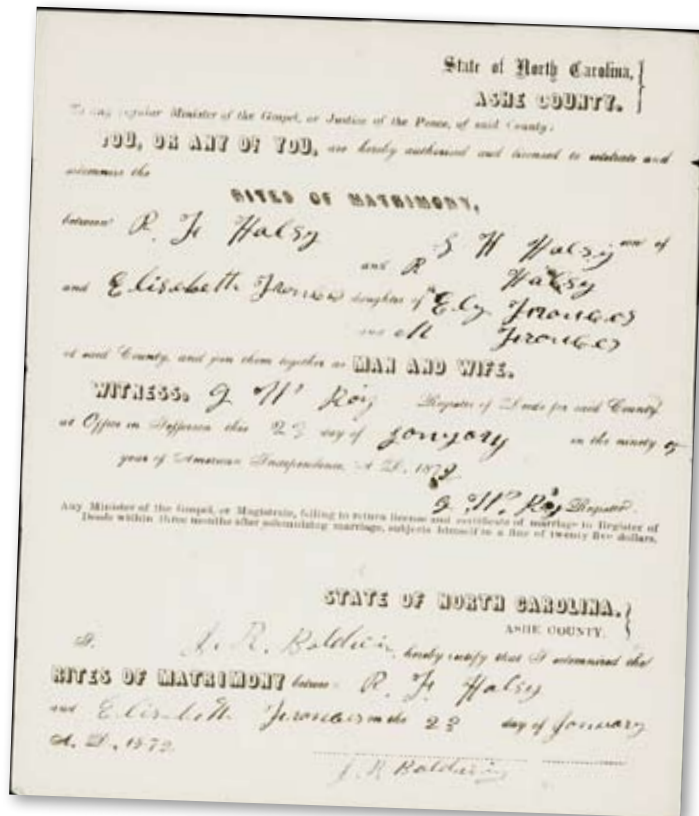 State of North Carolina,
ASHE COUNTY.
To any regular Minister of the Gospel, or Justice of the Peace, of said County:
YOU, OR ANY OF YOU, are hereby authorised and licensed to celebrate and
solemnize the
RITES OF MATRIMONY,
between R. F. Halsy
S H Halsy son of
and R Halsy
and Elisabeth daughter of Ely
and M
of said County, and join them together as MAN AND WIFE.
WITNESS. J W Register of Deeds for said County
at Office in Jefferson this 23 day of Jonyory in the ninety
year of American Independence, A. D., 187
J. W. Register.
Any Minister of the Gospel, or Magistrate, failing to return license and certificate of marriage to Register of
Deeds within three months after solemnizing marriage, subjects himself to a fine of twenty five dollars.
STATE OF NORTH CAROLINA.
ASHE COUNTY.
I. J. R. Baldwin, hereby certify that I solemnized the
RITES OF MATRIMONY between R. F. Halsy
and Elisabeth on the 23 day of January
A. D., 1872
J. R Baldwin